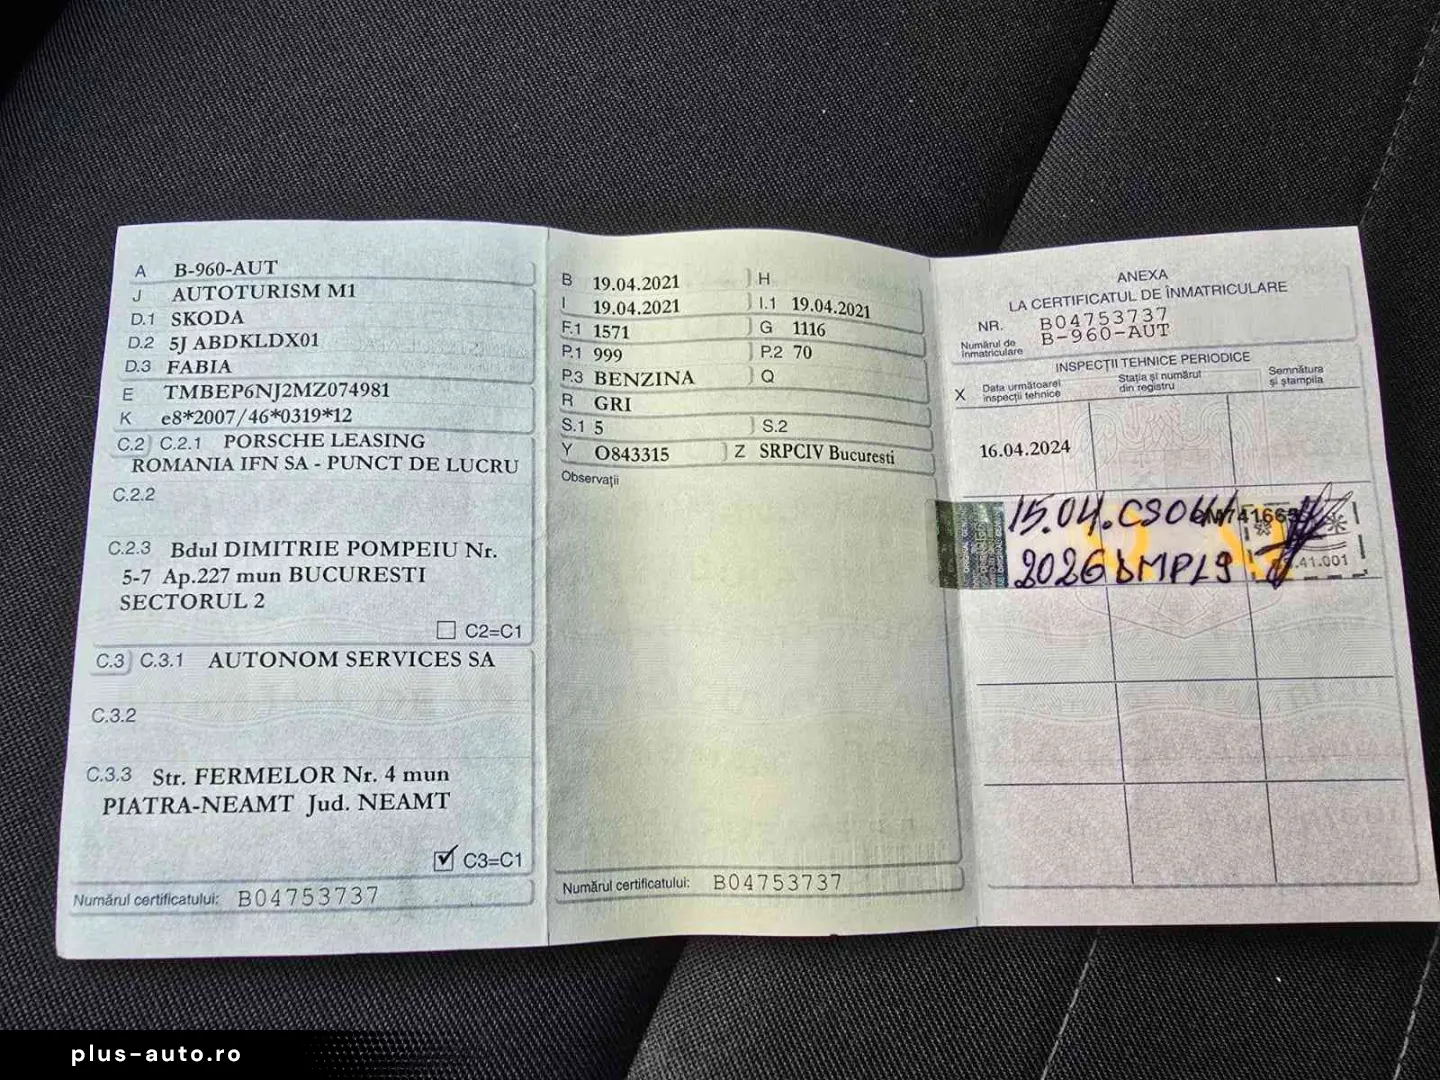 A B-960-AUT
J AUTOTURISM M1
D.1 SKODA
D.2 5J ABDKLDX01
D.3 FABIA
E TMBEP6NJ2MZ074981
K e8*2007/46*0319*12
C.2 C.2.1 PORSCHE LEASING
ROMANIA IFN SA - PUNCT DE LUCRU
C.2.2
C.2.3 Bdul DIMITRIE POMPEIU Nr.
5-7 Ap.227 mun BUCURESTI
SECTORUL 2
C2=C1
C.3 C.3.1 AUTONOM SERVICES SA
C.3.2
C.3.3 Str. FERMELOR Nr. 4 mun
PIATRA-NEAMT Jud. NEAMT
C3=C1
Numărul certificatului: B04753737
B 19.04.2021 H
I 19.04.2021 I.1 19.04.2021
F.1 1571 G 1116
P.1 999 P.2 70
P.3 BENZINA Q
R GRI
S.1 5 S.2
Y O843315 Z SRPCIV Bucuresti
Observații
Numărul certificatului: B04753737
ANEXA
LA CERTIFICATUL DE ÎNMATRICULARE
NR. B04753737
Numărul de înmatriculare B-960-AUT
INSPECȚII TEHNICE PERIODICE
X Data următoarei inspecții tehnice Stația și numărul din registru Semnătura și ștampila
16.04.2024
15.04.
2026
41.001
plus-auto.ro